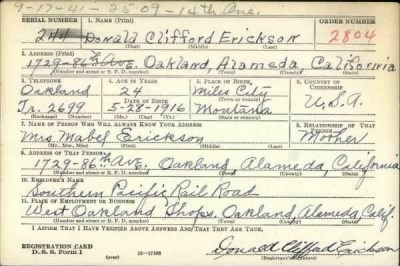 9-17-41-2509-14th Ave.
SERIAL NUMBER 1. NAME (Print) ORDER NUMBER
244 Donald Clifford Erickson 2804
(First) (Middle) (Last)
2. ADDRESS (Print)
1729-86th Ave. Oakland, Alameda, California
(Number and street or R. F. D. number) (Town) (County) (State)
3. TELEPHONE 4. AGE IN YEARS 5. PLACE OF BIRTH 6. COUNTRY OF CITIZENSHIP
Oakland 24 Miles City
(Exchange) DATE OF BIRTH (Town or county) U.S.A.
Tr. 2699 5-28-1916 Montana
(Number) (Mo.) (Day) (Yr.) (State or country)
7. NAME OF PERSON WHO WILL ALWAYS KNOW YOUR ADDRESS 8. RELATIONSHIP OF THAT PERSON
Mrs Mabel Erickson Mother
(Mr., Mrs., Miss) (First) (Middle) (Last)
9. ADDRESS OF THAT PERSON
1729-86th Ave. Oakland, Alameda, California
(Number and street or R. F. D. number) (Town) (County) (State)
10. EMPLOYER'S NAME
Southern Pacific Rail Road
11. PLACE OF EMPLOYMENT OR BUSINESS
West Oakland Shops, Oakland, Alameda, Calif.
(Number and street or R. F. D. number) (Town) (County) (State)
I AFFIRM THAT I HAVE VERIFIED ABOVE ANSWERS AND THAT THEY ARE TRUE.
REGISTRATION CARD
D. S. S. Form 1 16-17105 Donald Clifford Erickson
(over) (Registrant's signature)